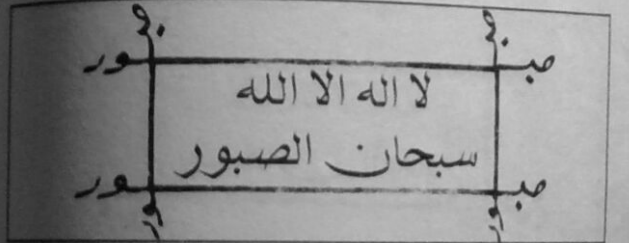 صبـــور
لا اله الا الله
سبحان الصبور
صبـــور